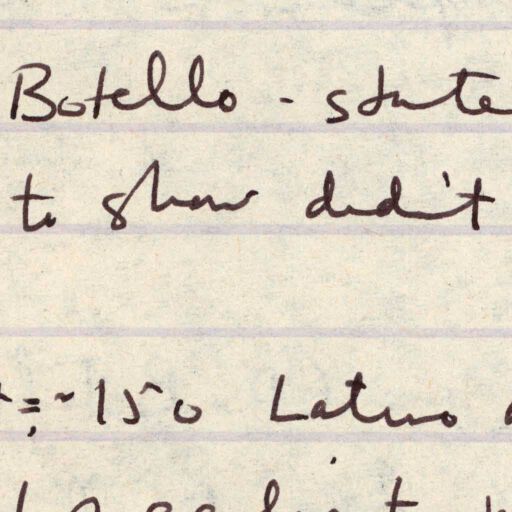 Botello - state
to show didn't
~150 Latino